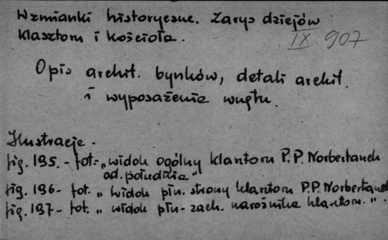 Wzmianki historyczne. Zarys dziejów
klasztoru i kościoła.
IX 907
Opis archit. bynków, detali archit.
i wyposażenie wnętrz.
Ilustracje.
fig. 195. - fot. - „widok ogólny klasztoru P.P. Norbertanek
od. południa"
fig. 196 - fot. „widok płn. strony klasztoru P.P. Norbertanek
fig. 197 - fot. „widok płn-zach. narożnika klasztoru."